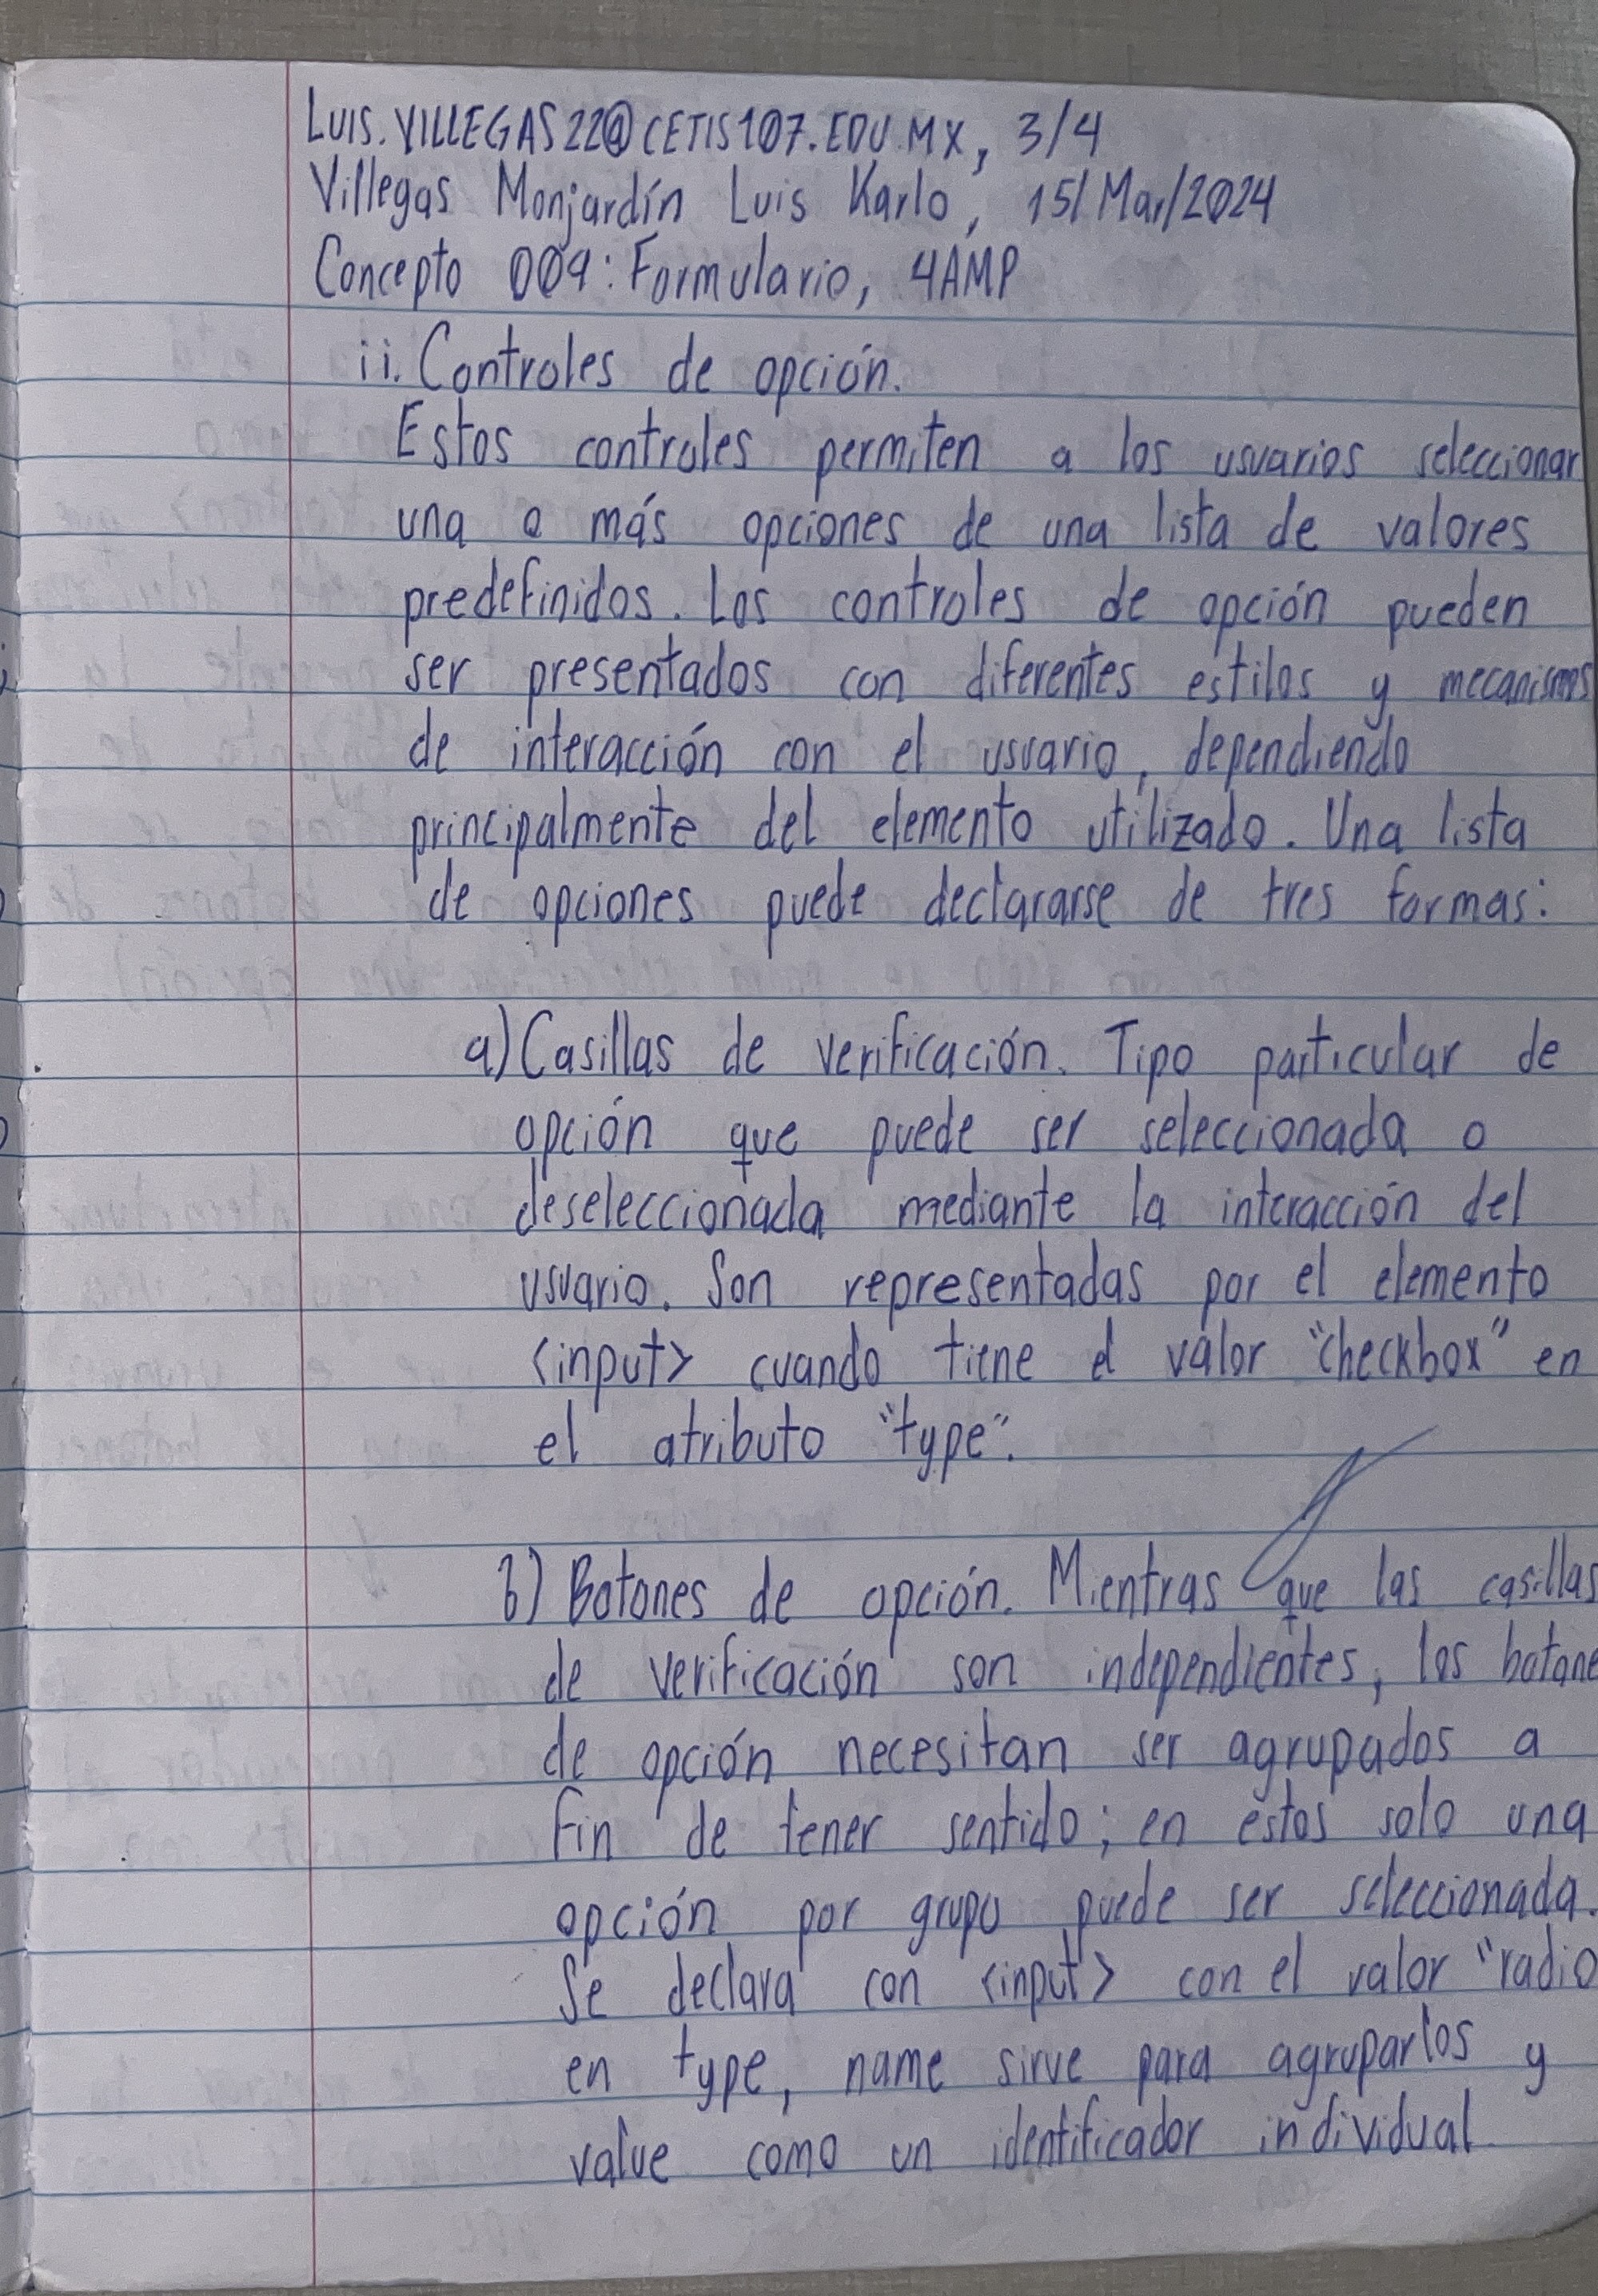 LUIS.VILLEGAS22@CETIS107.EDU.MX, 3/4
Villegas Monjardín Luis Karlo, 15/Mar/2024
Concepto 009: Formulario, 4AMP
ii. Controles de opción.
Estos controles permiten a los usuarios seleccionar
una o más opciones de una lista de valores
predefinidos. Los controles de opción pueden
ser presentados con diferentes estilos y mecanismos
de interacción con el usuario, dependiendo
principalmente del elemento utilizado. Una lista
de opciones puede declararse de tres formas:
a) Casillas de verificación. Tipo particular de
opción que puede ser seleccionada o
deseleccionada mediante la interacción del
usuario. Son representadas por el elemento
<input> cuando tiene el valor "checkbox" en
el atributo "type".
b) Botones de opción. Mientras que las casillas
de verificación son independientes, los botone
de opción necesitan ser agrupados a
fin de tener sentido; en estos solo una
opción por grupo puede ser seleccionada.
Se declara con <input> con el valor "radio
en type, name sirve para agruparlos y
value como un identificador individual